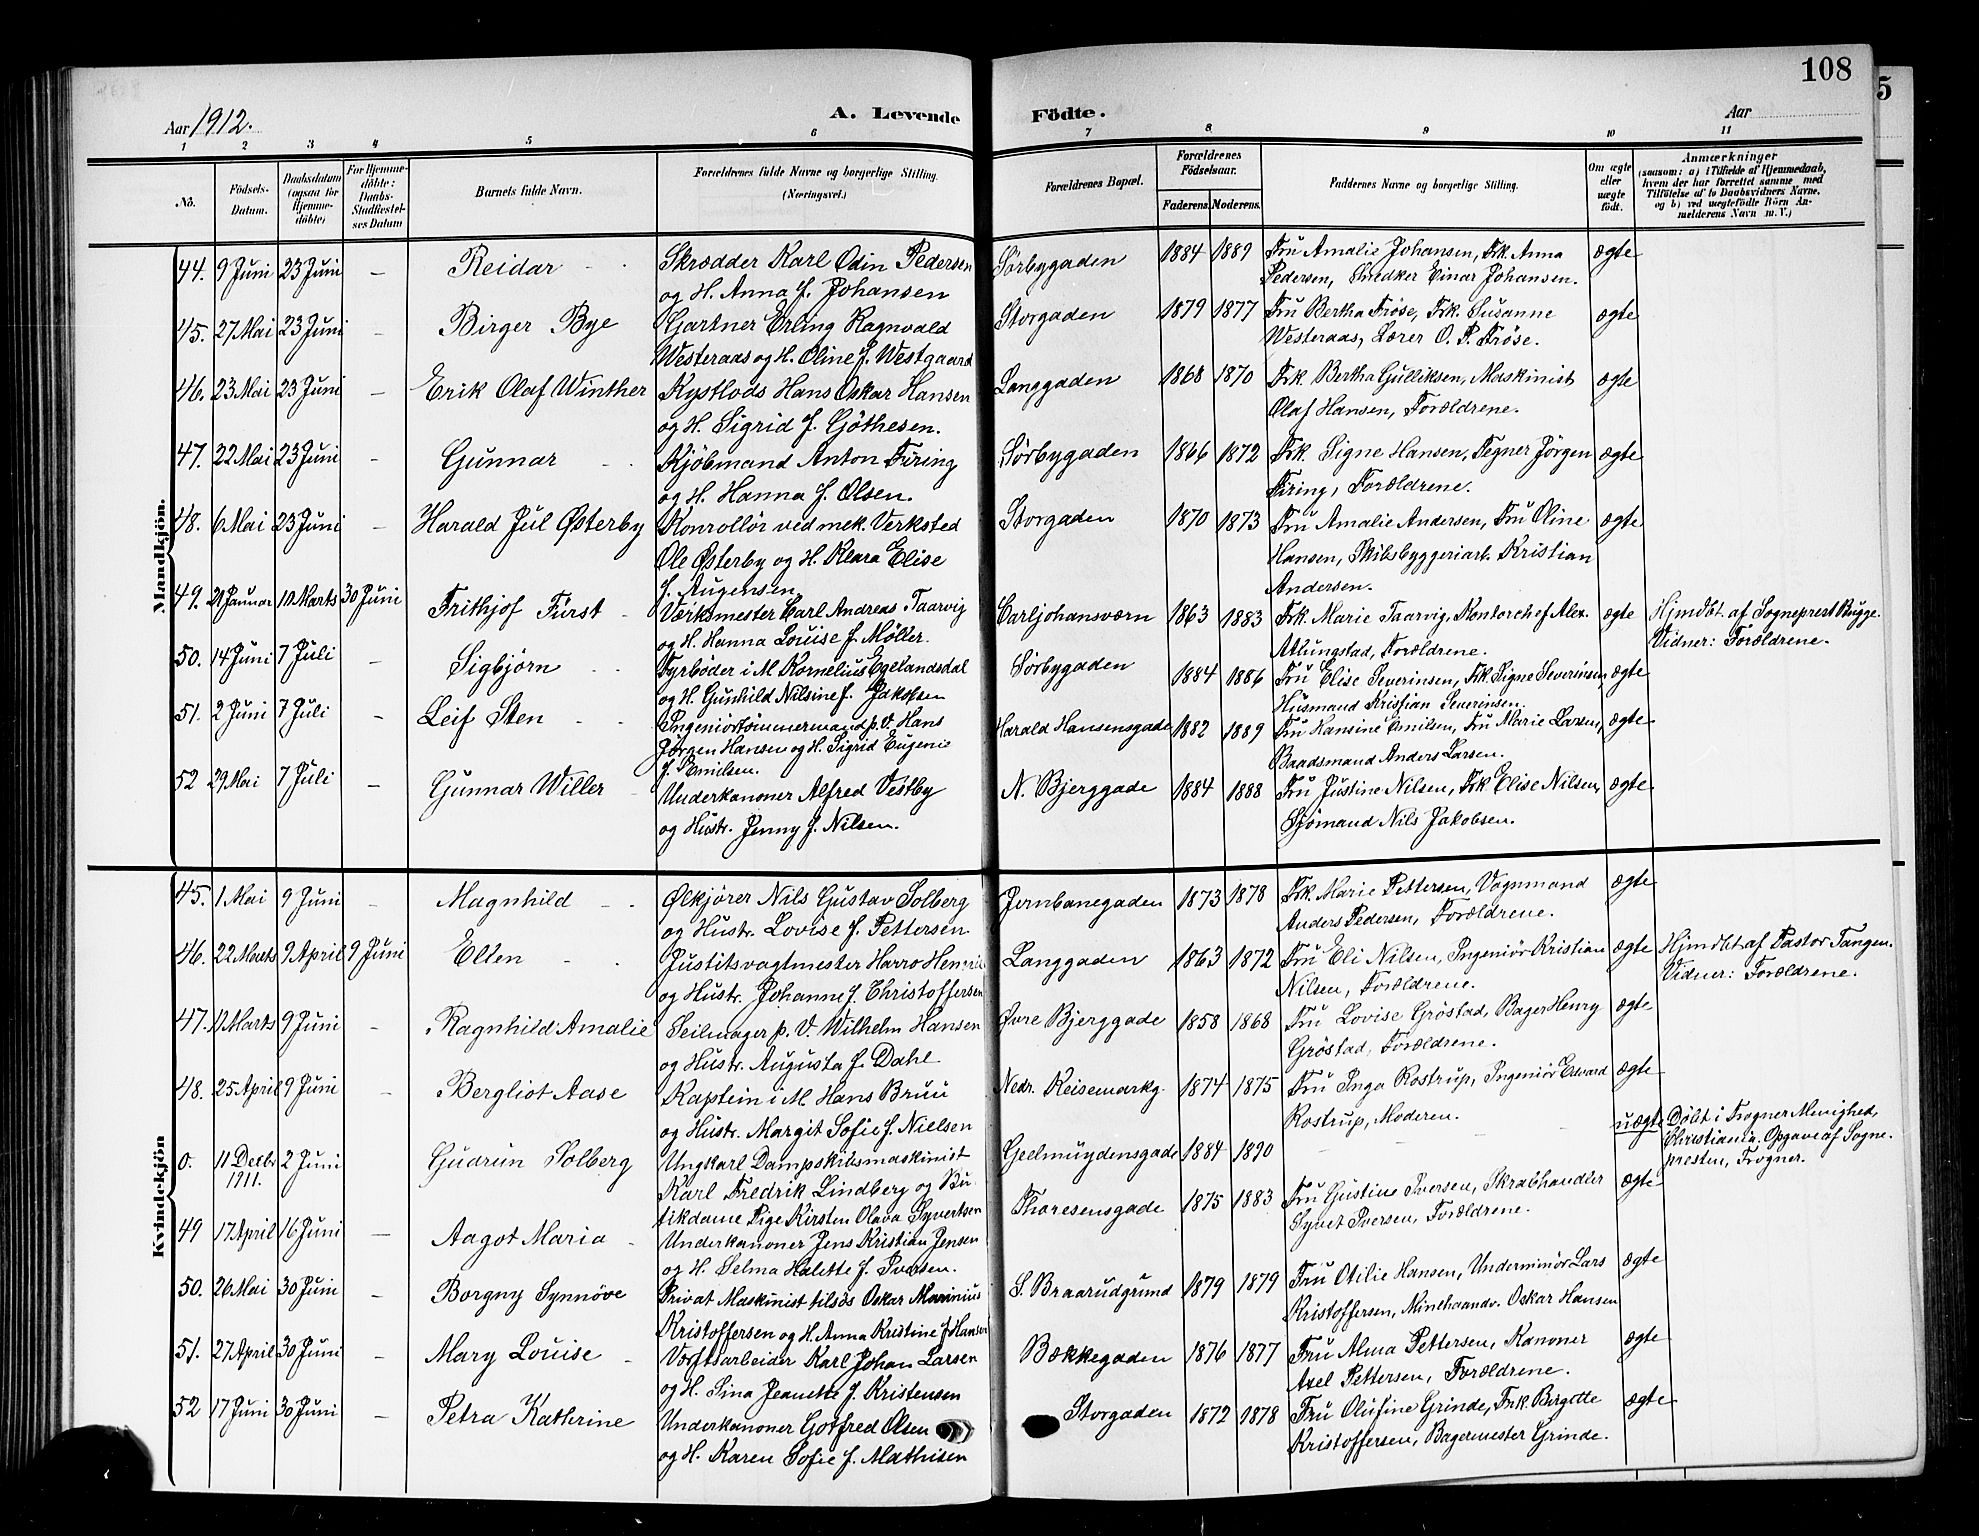 108
5
Aar 1912.
A. Levende
Födte.
Aar
1 2 3 4 5 6 7 8 9 10 11
No.
Födsels-
Datum.
Daabsdatum
(ogsaa for
Hjemme-
döbte)
For Hjemme-
döbte:
Daabs-
Stadfæstel-
ses Datum
Barnets fulde Navn.
Forældrenes fulde Navne og borgerlige Stilling.
(Næringsvei.)
Forældrenes Bopæl.
Forældrenes
Födselsaar.
Faderens. Moderens.
Faddernes Navne og borgerlige Stilling.
Om ægte
eller
uægte
födt.
Anmærkninger
(saasom: a) i Tilfælde af Hjemmedaab,
hvem der har forrettet samme med
Tilföielse af to Daabsvidners Navne.
og b) ved uægtefödte Börn An-
melderens Navn m. V.)
Mandkjön.
44. 9 Juni 23 Juni - Reidar Skrædder Karl Odin Pedersen Sørbygaden 1884 1889 Fru Amalie Johansen, Frk. Anna ægte
og H. Anna f. Johansen Pedersen, Snedker Einar Johansen.
45. 27 Mai 23 Juni - Birger Bye Gartner Erling Ragnvald Storgaden 1879 1877 Fru Bertha Frøse, Frk. Susanne ægte
Westeraas og H. Oline f. Westgaard Westeraas, Lærer O. P. Frøse.
46. 23 Mai 23 Juni - Erik Olaf Winther Kystlods Hans Oskar Hansen Langgaden 1868 1870 Frk. Bertha Gulliksen, Maskinist ægte
og H. Sigrid f. Göthesen. Olaf Hansen, Forældrene.
47. 22 Mai 23 Juni - Gunnar Kjöbmand Anton Firing Sørbygaden 1866 1872 Frk. Signe Hansen, Tegner Jörgen ægte
og H. Hanna f. Olsen. Firing, Forældrene.
48. 6 Mai 23 Juni - Harald Jul Østerby Konrollör ved mek. Verksted Storgaden 1870 1873 Fru Amalie Andersen, Fru Oline ægte
Ole Østerby og H. Klara Elise Hansen, Skibsbyggeriarb. Kristian
f. Augensen Andersen.
49. 21 Januar 10 Marts 30 Juni Frithjof Fürst Værksmester Carl Andreas Taarvig Carljohansværn 1863 1883 Frk. Marie Taarvig, Kontorchef Alex. ægte Hjmdbt. af Sogneprest Bugge.
og H. Hanna Louise f. Möller. Atlungstad, Forældrene. Vidner: Forældrene.
50. 14 Juni 7 Juli - Sigbjörn Fyrböder i M Kornelius Egelandsdal Sørbygaden 1884 1886 Fru Elise Severinsen, Frk Signe Severinsen, ægte
og H. Gunhild Nilsine f. Jakobsen Husmand Kristian Severinsen.
51. 2 Juni 7 Juli - Leif Sten Ingeniörtömmermand p. V. Hans Harald Hansensgade 1882 1889 Fru Hansine Emilsen, Fru Marie Larsen, ægte
Jørgen Hansen og H. Sigrid Eugenie Baadsmand Anders Larsen.
f. Emilsen.
52 29 Mai 7 Juli - Gunnar Willer Underkanoner Alfred Vestby N. Bjerggade 1884 1888 Fru Justine Nilsen, Frk Elise Nilsen, ægte
og Hustr. Jenny f. Nilsen. Sjömand Nils Jakobsen.
Kvindekjön
45. 1 Mai 9 Juni - Magnhild Ølkjører Nils Gustav Solberg Jernbanegaden 1873 1878 Frk. Marie Pettersen, Vognmand ægte
og Hustr. Lovise f. Pettersen Anders Pedersen, Forældrene.
46. 22 Marts 9 April 9 Juni Ellen Justitsvagtmester Harro Langgaden 1863 1872 Fru Eli Nilsen, Ingeniör Kristian ægte Hjmdbt. af Pastor Tangen.
og Hustr. Johanne f. Christoffersen Nilsen, Forældrene. Vidner: Forældrene.
47. 11 Marts 9 Juni - Ragnhild Amalie Seilmager p. V. Wilhelm Hansen Øvre Bjerggade 1858 1868 Fru Lovise Gröstad, Bager Henry ægte
og Hustr. Augusta f. Dahl Gröstad, Forældrene.
48. 25 April 9 Juni - Bergliot Aase Kaptein i M Hans Bruu Nedr. Keisemarkg. 1874 1875 Fru Inga Rostrup, Ingeniör Edvard ægte
og Hustr. Margit Sofie f. Nielsen Rostrup, Moderen.
0. 11 Decbr 1911. 2 Juni Gudrun Solberg Ungkarl Dampskibsmaskinist Geelmuydensgade 1884 1890 - uægte Döbt i Frogner Menighed,
Karl Fredrik Lindberg og Bu- Christiania. Opgave af Sogne-
tikdame Pige Kirsten Olava Syvertsen presten, Frogner.
49 17 April 16 Juni - Aagot Maria Underkanoner Jens Kristian Jensen Thoresensgade 1875 1883 Fru Gustine Iversen, Skrabhandler ægte
og H. Selma Halette f. Iversen. Syvert Iversen, Forældrene.
50. 26 Mai 30 Juni - Borgny Synnöve Privat Maskinist tilsös Oskar Marinius S. Braarudgrund 1879 1879 Fru Otilie Hansen, Underminör Lars ægte
Kristoffersen og H. Anna Kristine f Hansen Kristoffersen, Minehaandv. Oskar Hansen
51. 27 April 30 Juni - Mary Louise Værftsarbeider Karl Johan Larsen Bækkegaden 1876 1877 Fru Alma Pettersen, Kanoner ægte
og H. Sina Jeanette f. Kristensen Axel Pettersen, Forældrene.
52 17 Juni 30 Juni - Petra Kathrine Underkanoner Gotfred Olsen Storgaden 1872 1878 Fru Olufine Grinde, Frk. Birgitte ægte
og H. Karen Sofie f. Mathisen Kristoffersen, Bagermester Grinde.